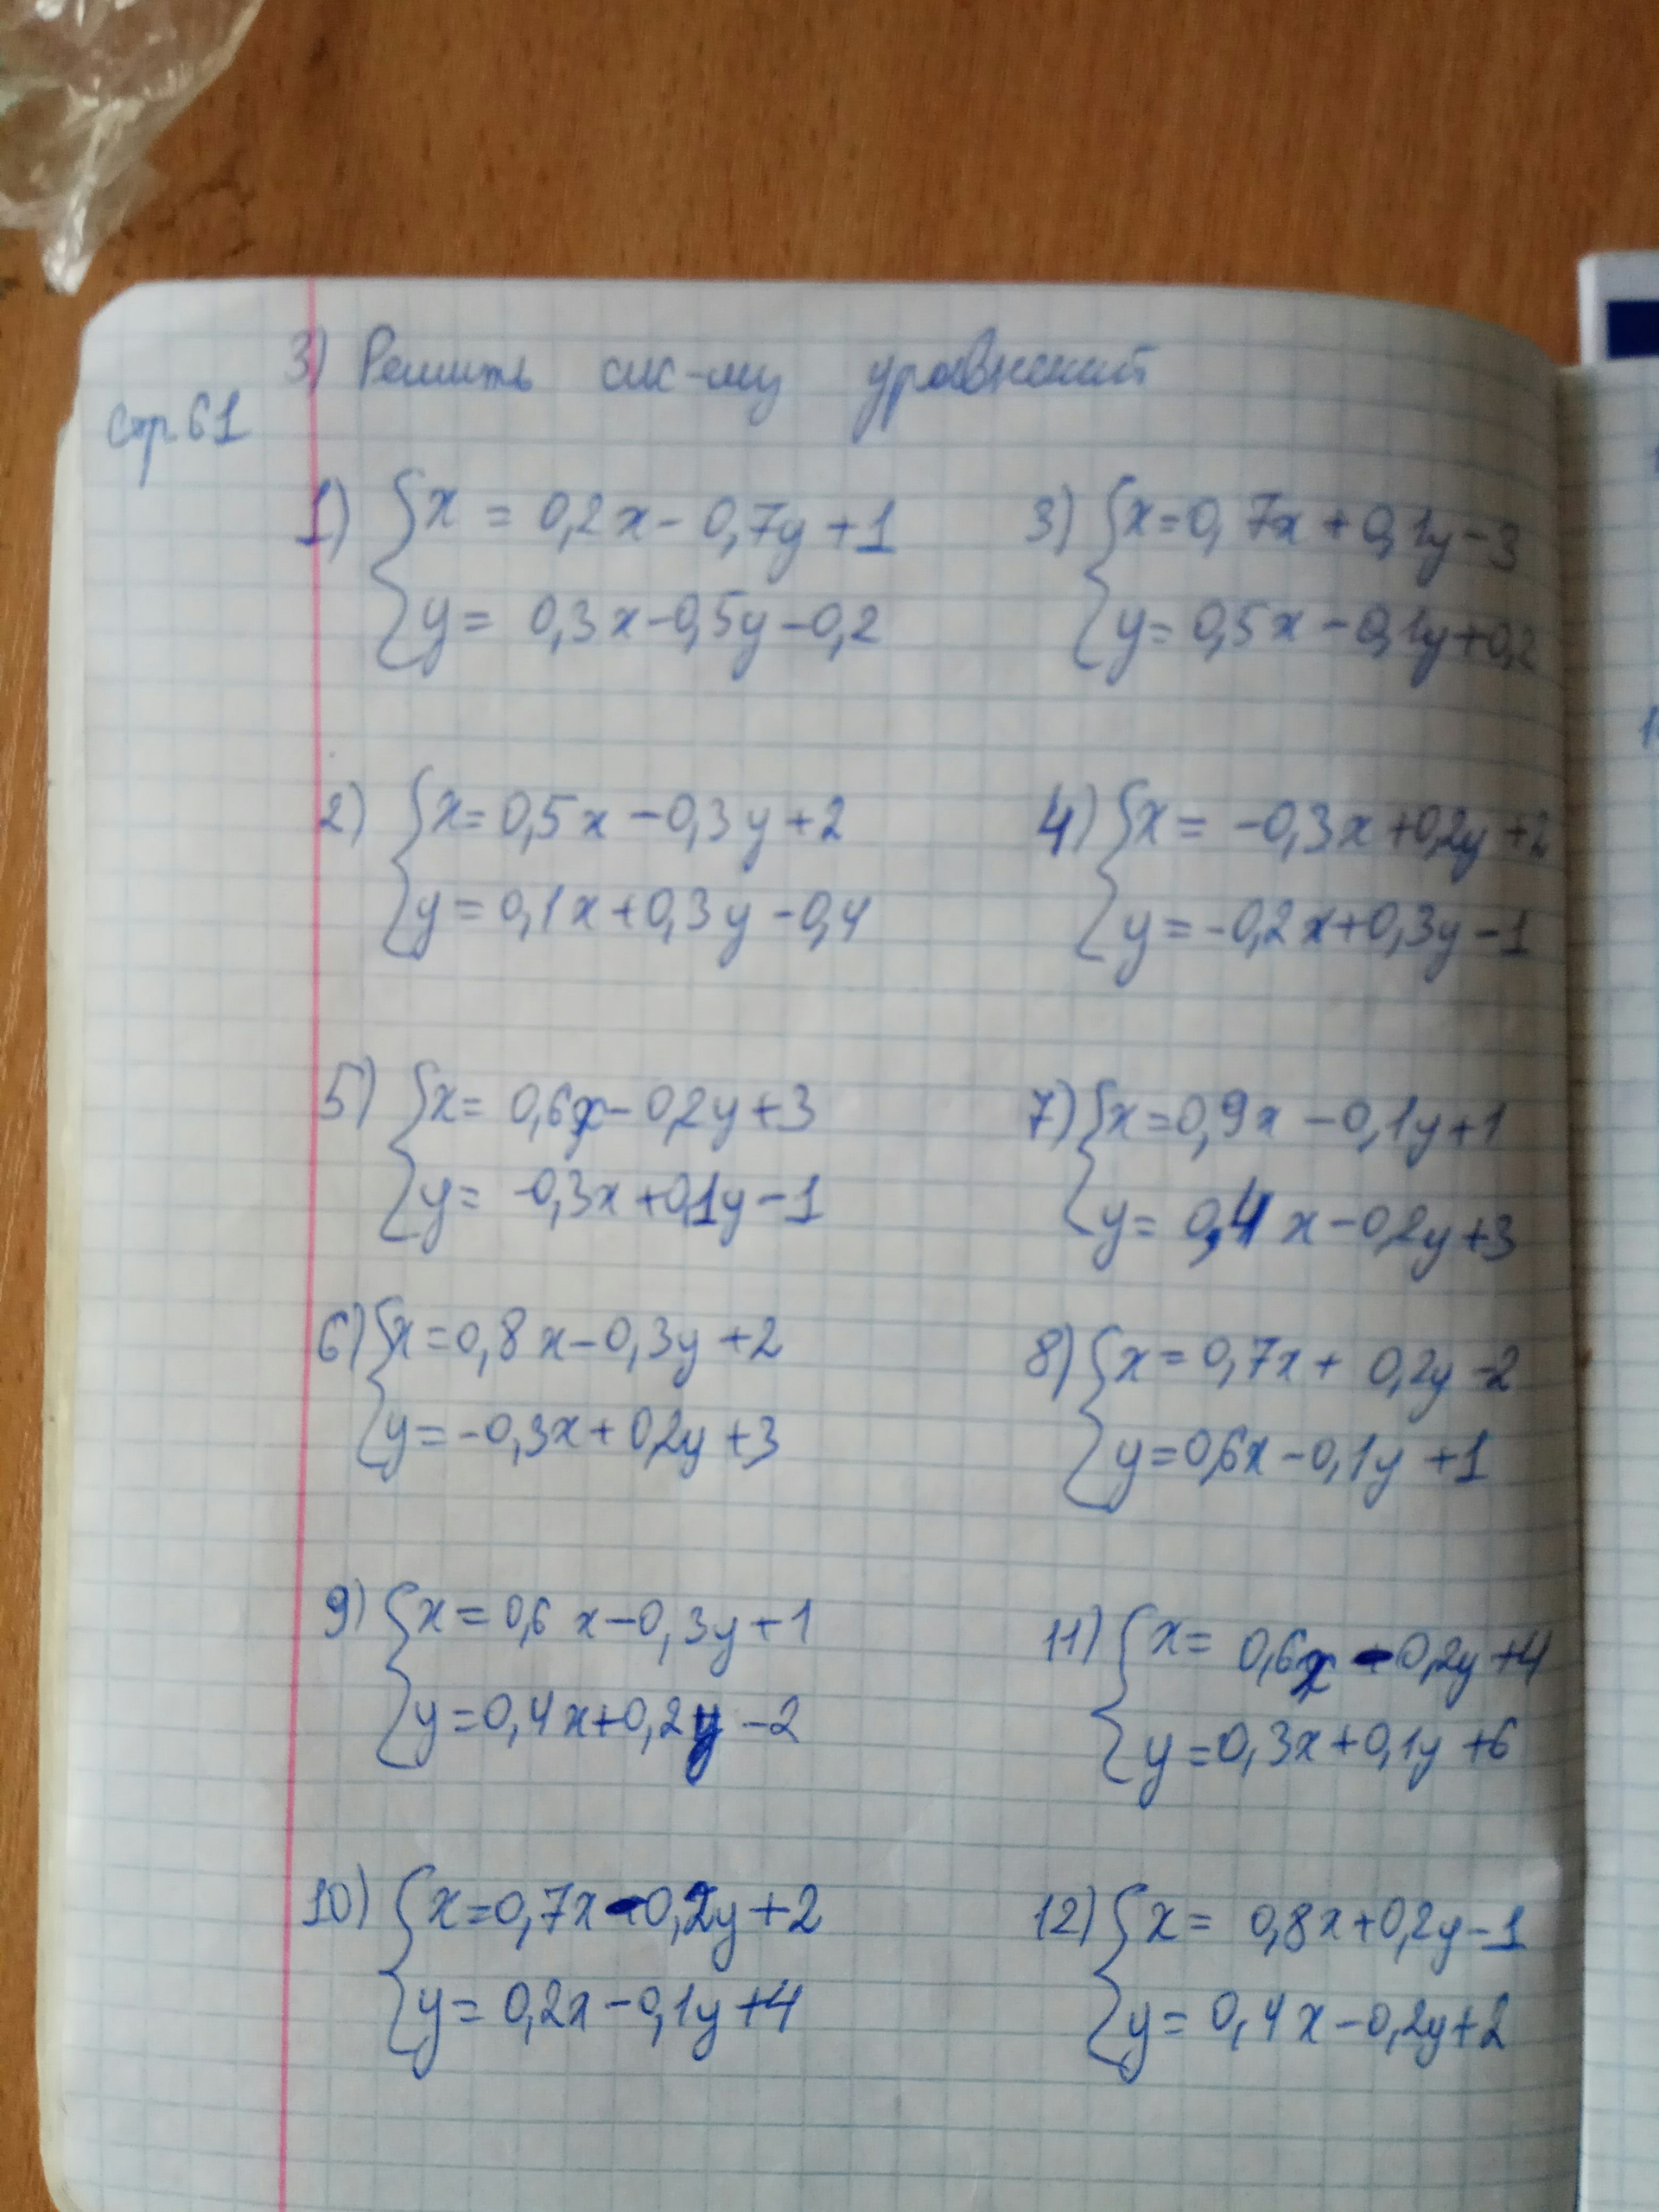 3) Решить сис-му уравнений
стр. 61
1) {x = 0,2x - 0,7y + 1
{y = 0,3x - 0,5y - 0,2
3) {x = 0,7x + 0,1y - 3
{y = 0,5x - 0,1y + 0,2
2) {x = 0,5x - 0,3y + 2
{y = 0,1x + 0,3y - 0,4
4) {x = -0,3x + 0,2y + 2
{y = -0,2x + 0,3y - 1
5) {x = 0,6x - 0,2y + 3
{y = -0,3x + 0,1y - 1
7) {x = 0,9x - 0,1y + 1
{y = 0,4x - 0,2y + 3
6) {x = 0,8x - 0,3y + 2
{y = -0,3x + 0,2y + 3
8) {x = 0,7x + 0,2y - 2
{y = 0,6x - 0,1y + 1
9) {x = 0,6x - 0,3y + 1
{y = 0,4x + 0,2y - 2
11) {x = 0,6x - 0,2y + 4
{y = 0,3x + 0,1y + 6
10) {x = 0,7x - 0,2y + 2
{y = 0,2x - 0,1y + 4
12) {x = 0,8x + 0,2y - 1
{y = 0,4x - 0,2y + 2